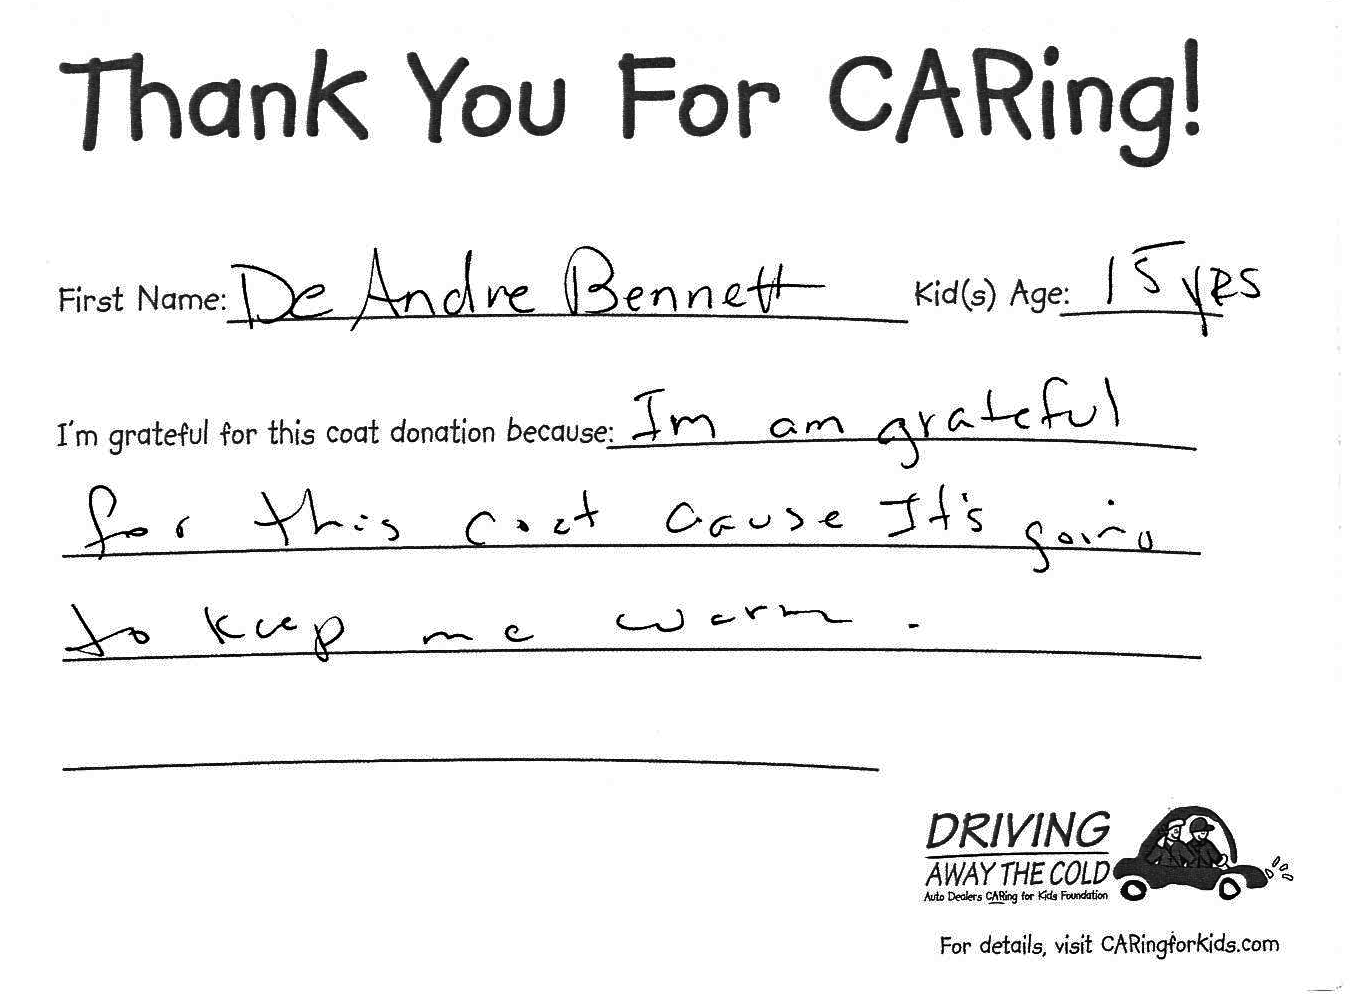 Thank You For CARing!
First Name: De Andre Bennett Kid(s) Age: 15 yrs
I'm grateful for this coat donation because: Im am grateful
for this coat cause It's going
to keep me warm.
DRIVING
AWAY THE COLD
Auto Dealers CARing for Kids Foundation
For details, visit CARingforkids.com